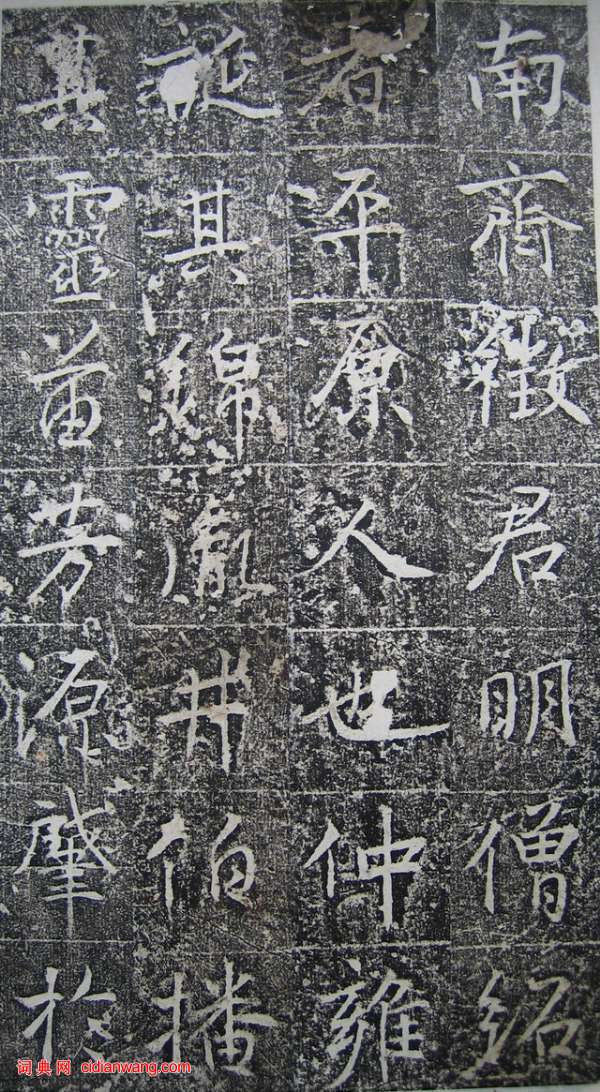 南齊徵君明僧紹
者平原人也仲雍
誕其綿胤井伯播
其靈苗芳源肇於
词典网 cidianwang.com